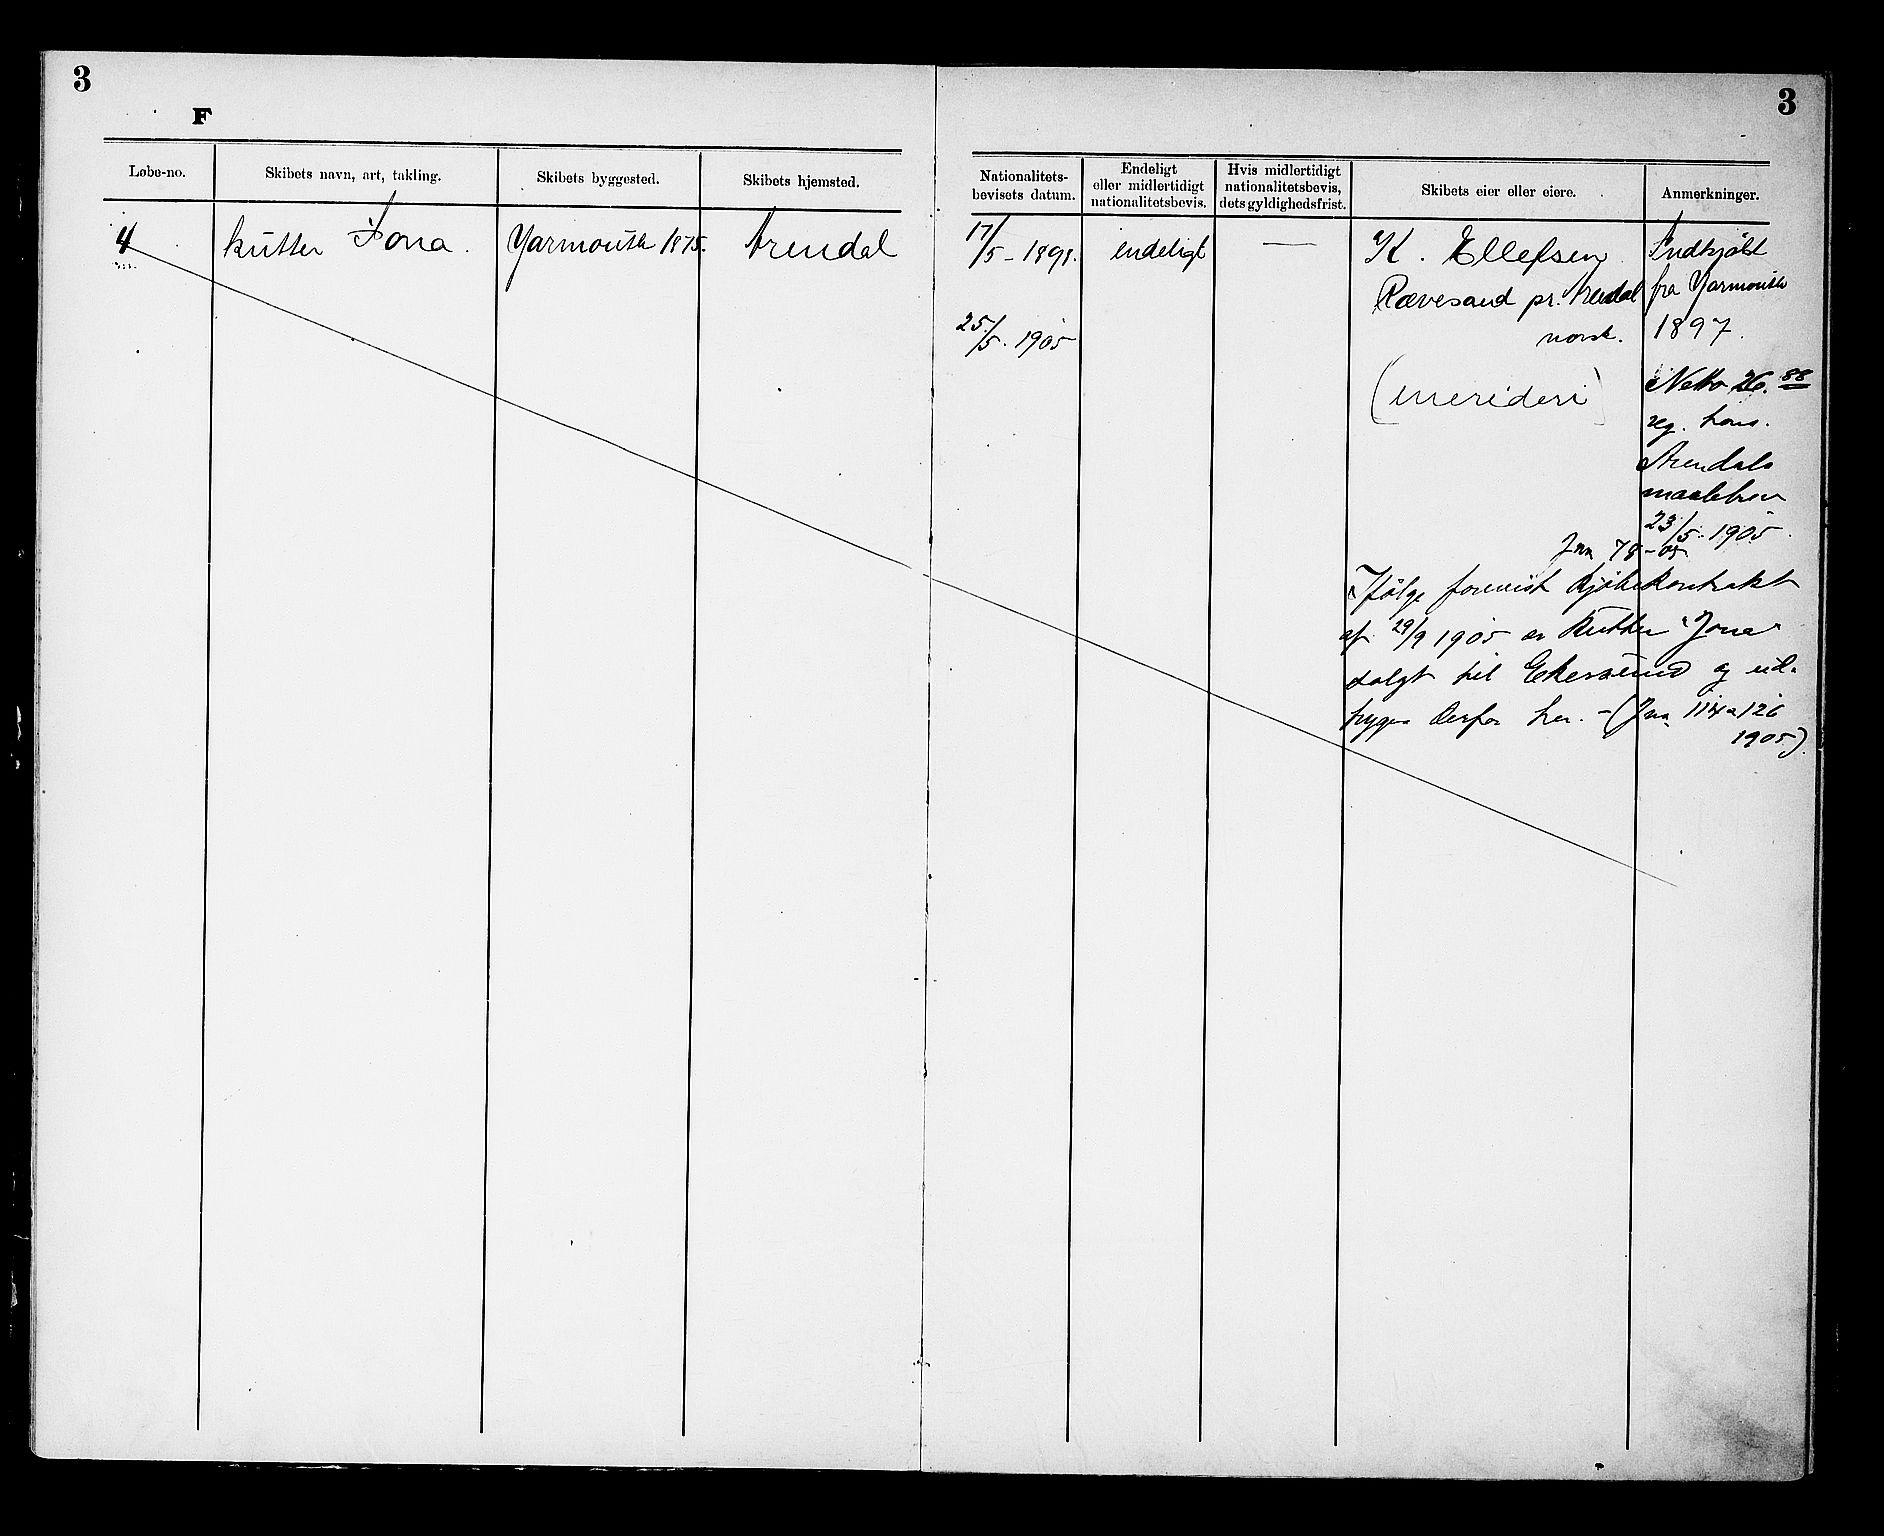 3
3
F
Løbe-no.
Skibets navn, art, takling.
Skibets byggested.
Skibets hjemsted.
Nationalitets-
bevisets datum.
Endeligt
eller midlertidigt
nationalitetsbevis.
Hvis midlertidigt
nationalitetsbevis,
dets gyldighedsfrist.
Skibets eier eller eiere.
Anmerkninger.
4
kutter Iona.
Yarmouth 1875.
Arendal
17/5 - 1898.
endeligt
—
K. Ellefsen
Rævesand pr. Arendal
norsk.
(enerideri)
25/5. 1905
Indkjøbt
fra Yarmouth
1897.
Netto 26.88
reg. tons.
Arendals
maalebrev
23/5. 1905.
Jnr 78-05
Ifølge forevist Kjøbekontrakt
af 29/9 1905 er Kutter "Jona"
solgt til Ekersund og ud-
gaar derfor her. - (Jnr. 114 & 126
1905)